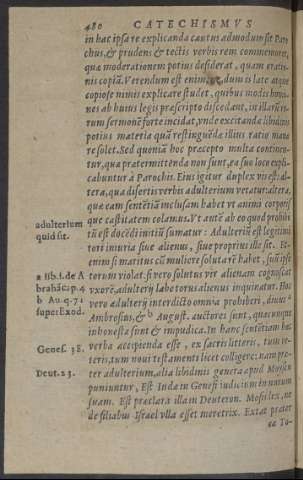 480 CATECHISMVS
in hac ipsa re explicanda cautus admodum sit Paro
chus, & prudens & tectis verbis rem commemoret,
quæ moderationem potius desiderat, quam oratio-
nis copiã. Verendum est enim, ne, dum is late atque
copiose nimis explicare studet, quibus modis homi-
nes ab huius legis præscripto discedant, in illarũ re-
rum sermonẽ forte incidat, vnde excitanda libidinis
potius materia quã restinguẽdæ illius ratio mana
re solet. Sed quoniã hoc præcepto multa continen-
tur, quæ prætermittenda non sunt, ea suo loco expli-
cabuntur à Parochis. Eius igitur duplex vis est; al-
tera, qua disertis verbis adulterium vetatur; altera,
quæ eam sentẽtiã inclusam habet vt animi corporis
que castitatem colamus. Vt autẽ ab eo quod prohibi
tũ est docẽdi initiũ sumatur : Adulteriũ est legitimi
adulterium
quid sit.
tori iniuria siue alienus, siue proprius ille sit. Et-
enim si maritus cũ muliere solutarẽ habet, suũ ipse
torum violat. si vero solutus vir alienam cognoscat
a lib. 1. de A
brahã c. 4
b Au. q. 71
super Exod.
vxorẽ, adulterij labe torus alienus inquinatur. Hoc
vero adulterij interdicto omnia prohiberi, diuus a
Ambrosius, & b August. auctores sunt, quæcunque
inhonesta sunt & impudica. In hanc sentẽtiam hæc
Genes. 38.
verba accipienda esse, ex sacris litteris, tum ve-
teris, tum noui testamenti licet colligere: nam præ-
Deut. 23.
ter adulterium, alia libidinis genera apud Mosen
puniuntur, Est Iudæ in Genesi iudicium in nurum
suam. Est præclara illa in Deuteron. Mosi lex, ne
de filiabus Israel vlla esset meretrix. Extat præter
ea To-